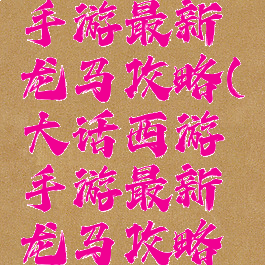 手游最新
龙马攻略(
大话西游
手游最新
龙马攻略